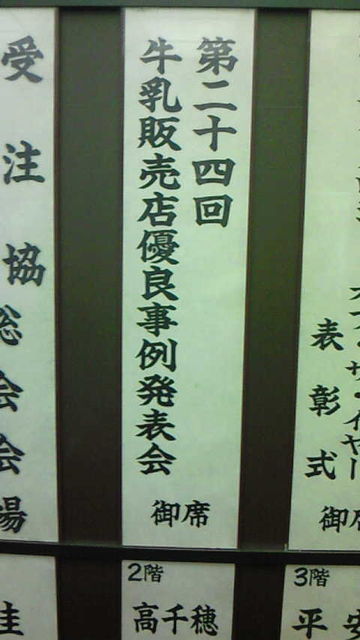 オブ・ザ・イヤー
表彰式
御席
3階
平安
第二十四回
牛乳販売店優良事例発表会
御席
2階
高千穂
受注協
総会会場
圭